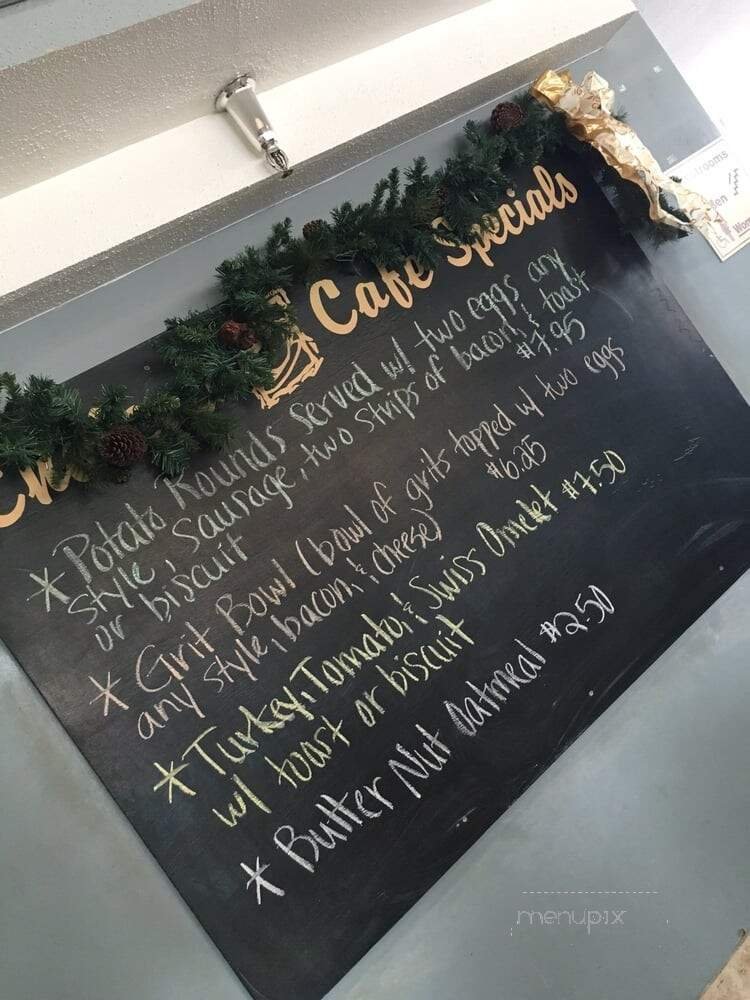 Cafe Specials
* Potato Rounds served w/ two eggs any
style, sausage, two strips of bacon, & toast
or biscuit $7.95
* Grit Bowl (bowl of grits topped w/ two eggs
any style, bacon, & cheese) $6.25
* Turkey, Tomato, & Swiss Omelet $7.50
w/ toast or biscuit
* Butter Nut Oatmeal $2.50
menupix